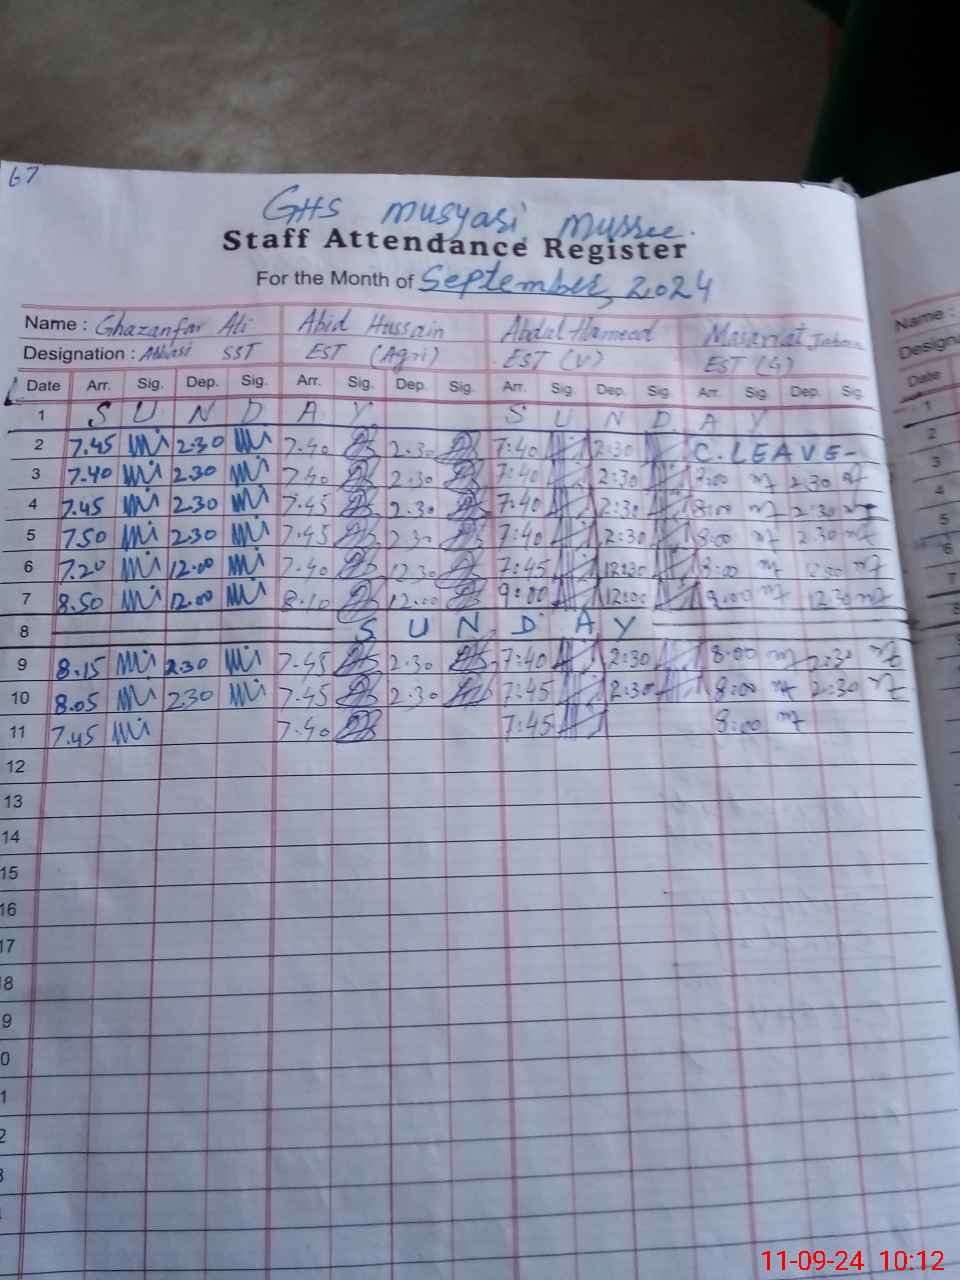 67
GHS musyasi mussee.
Staff Attendance Register
For the Month of September, 2024
Name : Ghazanfar Ali Abid Hussain Abdul Hameed Masarrat Jabeen
Name :
Designation : Abbasi SST EST (Agri) EST (V) EST (G)
Design
Date Arr. Sig. Dep. Sig. Arr. Sig. Dep. Sig. Arr. Sig. Dep. Sig. Arr. Sig. Dep. Sig.
Date
1 S U N D A Y S U N D A Y
1
2 7.45 2.30 7.40 2.30 7:40 2:30 C. LEAVE-
2
3 7.40 2.30 7.40 2.30 7:40 2:30 8:00 2:30
3
4 7.45 2.30 7.45 2.30 7:40 2:30 8:00 2:30
4
5 7.50 2.30 7.45 2.30 7:40 2:30 8:00 2.30
5
6 7.20 12.00 7.40 12.30 7:45 12:30 8:00 12:30
6
7 8.50 12.00 8.10 12.00 9:00 12:00 8:00 12:30
7
8 S U N D A Y
8
9 8.15 2.30 7.45 2.30 7:40 2:30 8:00 2:30
10 8.05 2.30 7.45 2.30 7:45 2:30 8:00 2:30
11 7.45 7.40 7:45 8:00
12
13
14
15
16
17
18
9
0
1
2
3
11-09-24 10:12